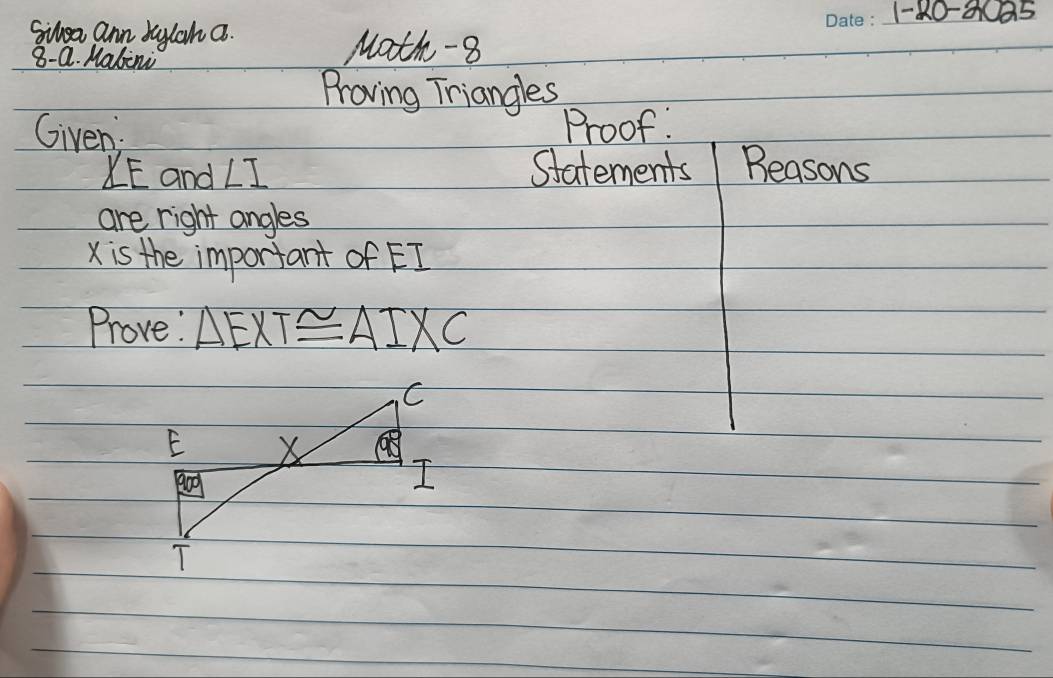 Date : 1-20-2025
Silva Ann Kylah A.
8-A. Mabini
Math - 8
Proving Triangles
Given:
∠E and ∠I
are right angles
X is the important of EI
Prove: ΔEXT ≅ AIXC
Proof:
Statements Reasons
C
E X 90
I
90°
T